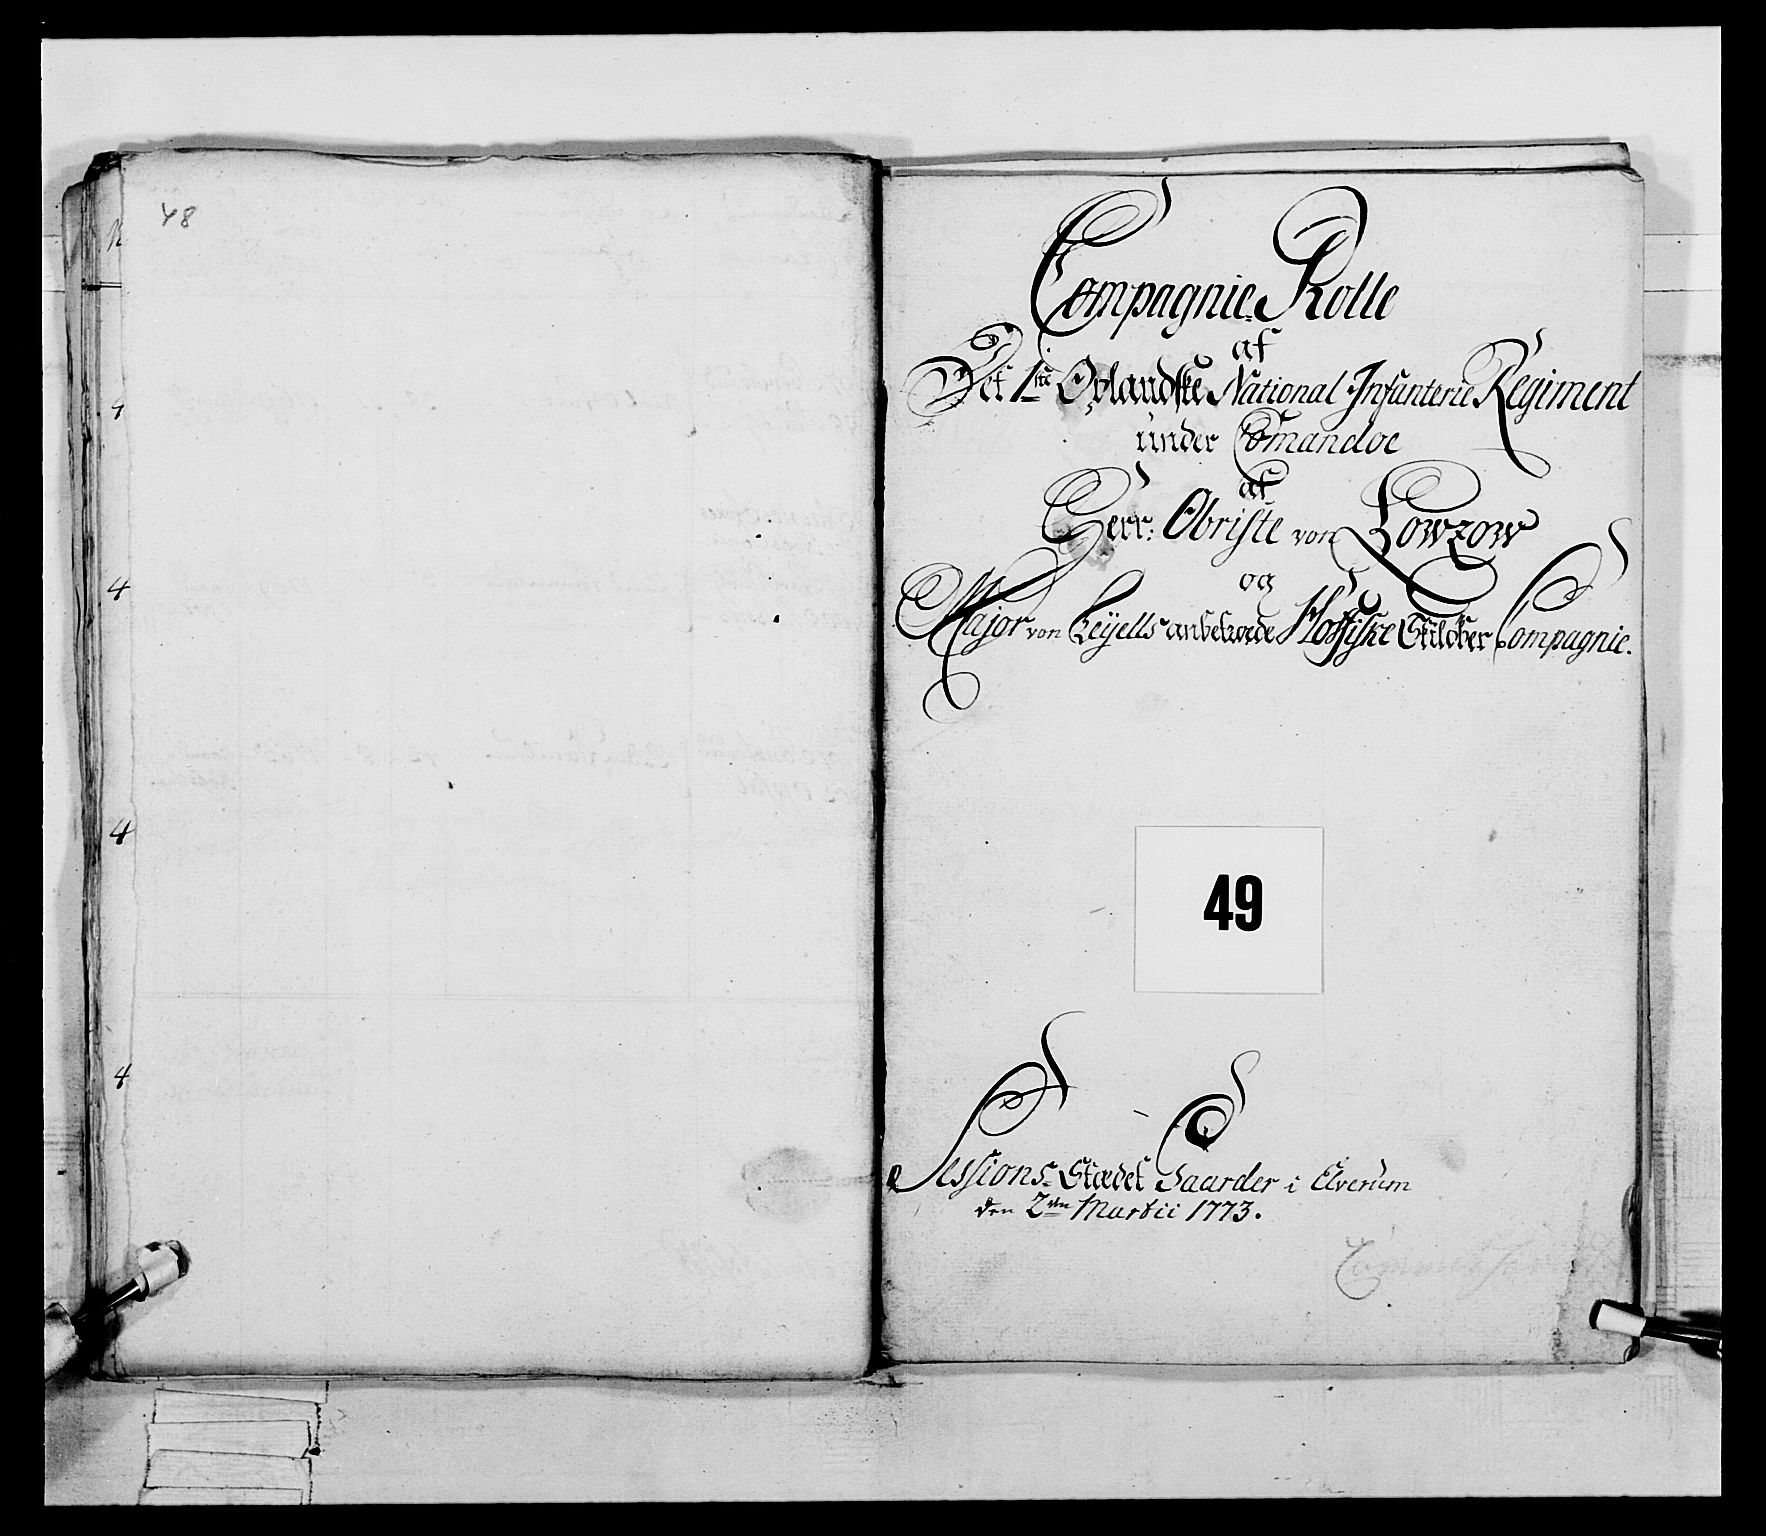 48
4
4
4
4
Compagnie Rolle
af
Det 1ste Oplandske National Infanterie Regiment
under Comandoe
af
Herr: Obriste von Lowzow
og
Major von Zeÿells anbetroede Compagnie.
49
Sessions Stædet Gaarder i Elverum
den 2den Martii 1773.